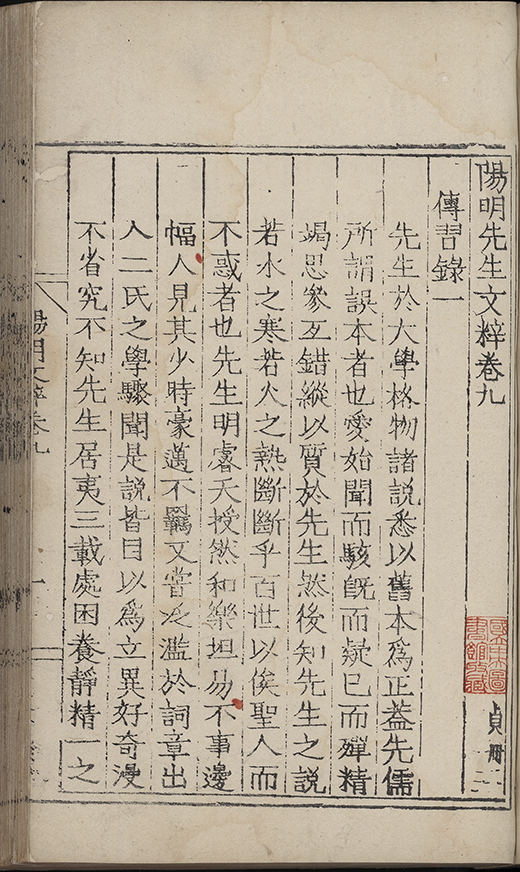 陽明先生文粹卷九
傳習錄一
先生於大學格物諸說悉以舊本爲正葢先儒
所謂誤本者也愛始聞而駭旣而疑已而殫精
竭思參互錯縱以質於先生然後知先生之說
若水之寒若火之熱斷斷乎百世以俟聖人而
不惑者也先生明睿天授然和樂坦易不事邊
幅人見其少時豪邁不羈又嘗泛濫於詞章出
入二氏之學驟聞是說皆目以爲立異好奇漫
不省究不知先生居夷三載處困養靜精一之
陽明文粹卷九
貞冊